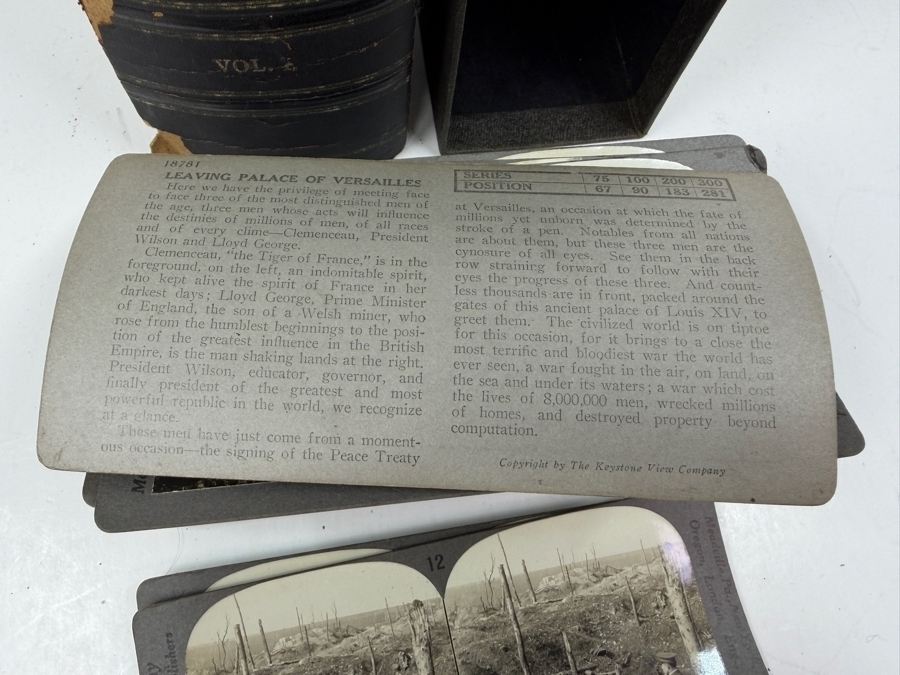 VOL. I.
18781
LEAVING PALACE OF VERSAILLES
Here we have the privilege of meeting face
to face three of the most distinguished men of
the age, three men whose acts will influence
the destinies of millions of men, of all races
and of every clime—Clemenceau, President
Wilson and Lloyd George.
Clemenceau, "the Tiger of France," is in the
foreground, on the left, an indomitable spirit,
who kept alive the spirit of France in her
darkest days; Lloyd George, Prime Minister
of England, the son of a Welsh miner, who
rose from the humblest beginnings to the posi-
tion of the greatest influence in the British
Empire, is the man shaking hands at the right.
President Wilson, educator, governor, and
finally president of the greatest and most
powerful republic in the world, we recognize
at a glance.
These men have just come from a moment-
ous occasion—the signing of the Peace Treaty
SERIES 75 100 200 300
POSITION 67 90 183 281
at Versailles, an occasion at which the fate of
millions yet unborn was determined by the
stroke of a pen. Notables from all nations
are about them, but these three men are the
cynosure of all eyes. See them in the back
row straining forward to follow with their
eyes the progress of these three. And count-
less thousands are in front, packed around the
gates of this ancient palace of Louis XIV, to
greet them. The civilized world is on tiptoe
for this occasion, for it brings to a close the
most terrific and bloodiest war the world has
ever seen, a war fought in the air, on land, on
the sea and under its waters; a war which cost
the lives of 8,000,000 men, wrecked millions
of homes, and destroyed property beyond
computation.
Copyright by The Keystone View Company
12